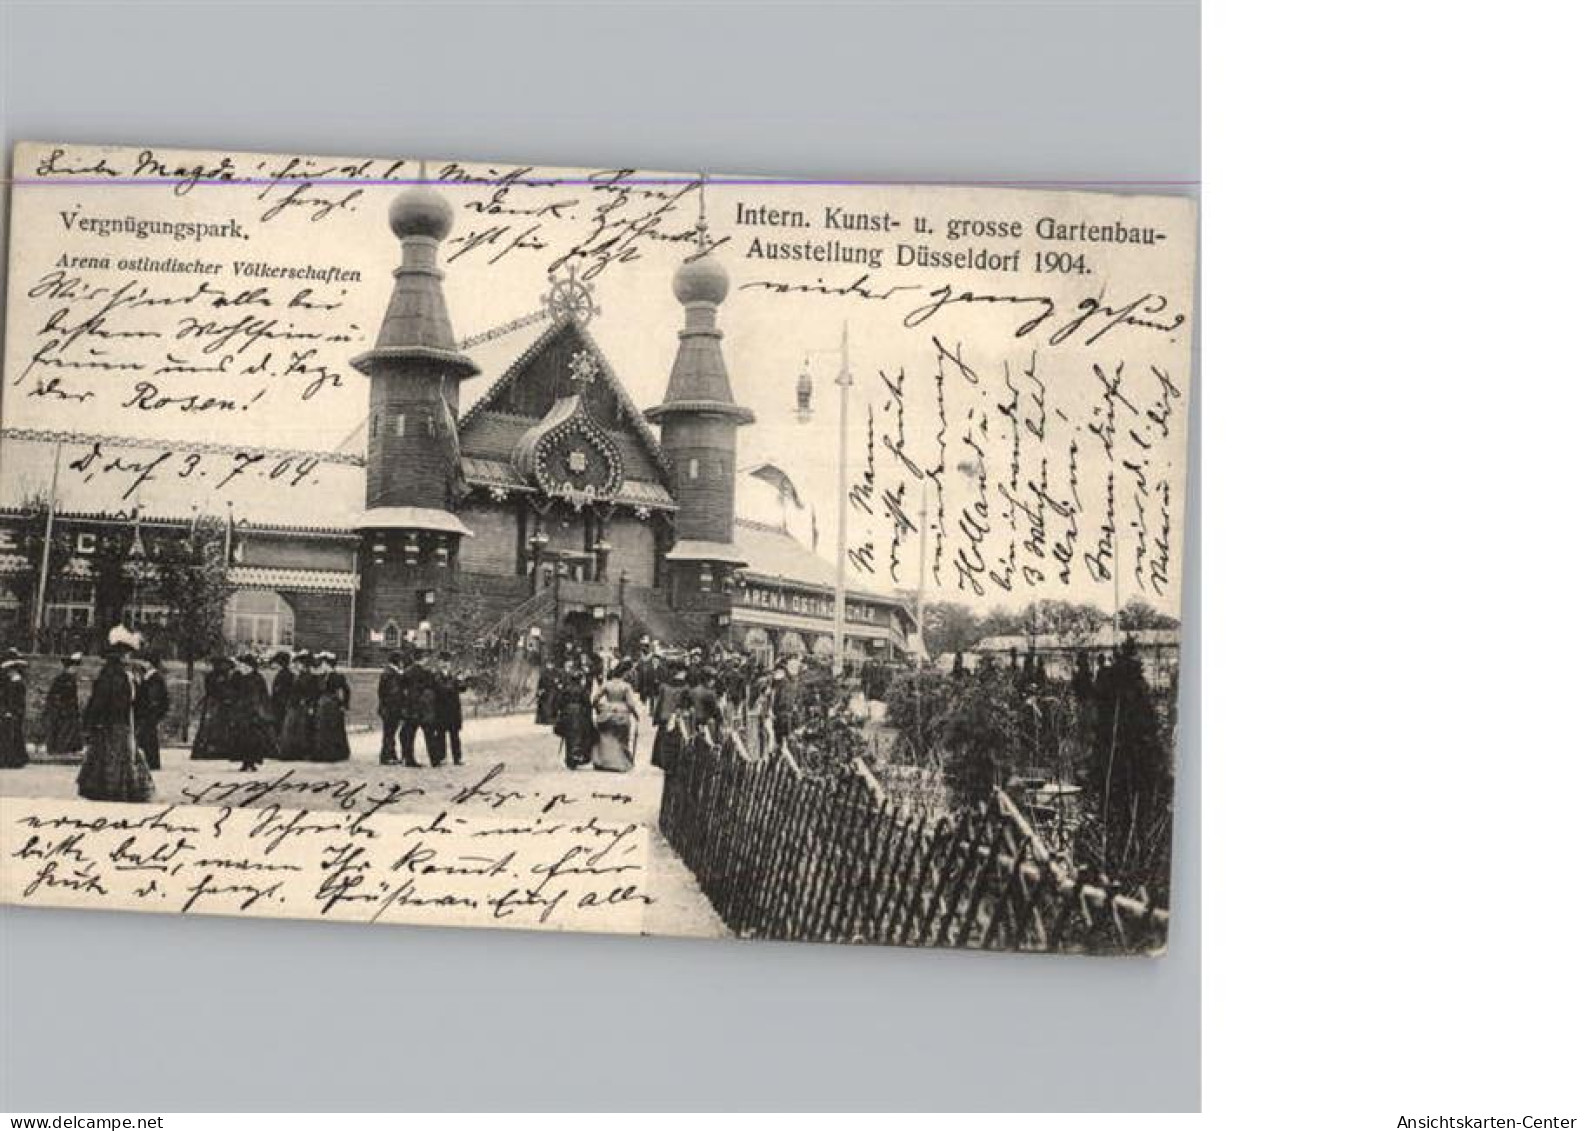 Liebe Magda! für d. l. Mutter Brief
herzl. Dank. Hoffentlich
ist sie jetzt
wieder ganz gesund.
Vergnügungspark.
Arena ostindischer Völkerschaften
Intern. Kunst- u. grosse Gartenbau-
Ausstellung Düsseldorf 1904.
Wir sind alle bei
bestem Wohlsein u.
freuen uns d. Tage
der Rosen!
D,dorf 3. 7. 04.
M. Mann
reiste heute
wieder nach
Holland u.
bin ich wieder
3 Wochen
allein!
Wann dürfen
wir d. l.
u. dich
ARENA OSTINDISCHER
erwarten? Schreibe du mir doch
bitte, bald, wann Ihr kommt. Für
heute d. herzl. Grüße an Euch alle
delcampe.net
Ansichtskarten-Center